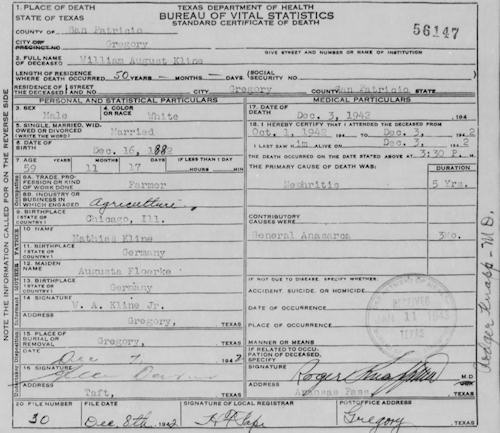 1. PLACE OF DEATH
STATE OF TEXAS
TEXAS DEPARTMENT OF HEALTH
BUREAU OF VITAL STATISTICS
STANDARD CERTIFICATE OF DEATH
56147
COUNTY OF San Patricio
CITY OR
PRECINCT NO. Gregory
GIVE STREET AND NUMBER OR NAME OF INSTITUTION
2. FULL NAME OF DECEASED William August Kline
LENGTH OF RESIDENCE
WHERE DEATH OCCURRED 50 YEARS - MONTHS - DAYS
(SOCIAL
SECURITY NO.
RESIDENCE OF THE DECEASED
STREET AND NO.
CITY Gregory COUNTY San Patricio STATE
PERSONAL AND STATISTICAL PARTICULARS
MEDICAL PARTICULARS
3. SEX Male
4. COLOR OR RACE White
5. SINGLE, MARRIED, WIDOWED OR DIVORCED (WRITE THE WORD) Married
6. DATE OF BIRTH Dec. 16, 1882
7. AGE YEARS 59 MONTHS 11 DAYS 17 IF LESS THAN 1 DAY HOURS MIN
8A. TRADE, PROFESSION OR KIND OF WORK DONE Farmer
8B. INDUSTRY OR BUSINESS IN WHICH ENGAGED Agriculture
9. BIRTHPLACE (STATE OR COUNTRY) Chicago, Ill.
FATHER
10 NAME Mathias Kline
11. BIRTHPLACE (STATE OR COUNTRY) Germany
MOTHER
12. MAIDEN NAME Augusta Floerke
13. BIRTHPLACE (STATE OR COUNTRY) Germany
14 SIGNATURE W. A. Kline Jr.
ADDRESS Gregory, TEXAS
15. PLACE OF BURIAL OR REMOVAL Gregory, TEXAS
DATE Dec 7, 1942
16 SIGNATURE
ADDRESS Taft, TEXAS
17. DATE OF DEATH Dec. 3, 1942 194
18. I HEREBY CERTIFY THAT I ATTENDED THE DECEASED FROM
Oct. 1, 1942 194 TO Dec. 3, 194 2
I LAST SAW him ALIVE ON Dec. 3, 194 2
THE DEATH OCCURRED ON THE DATE STATED ABOVE AT 3:30 P. M.
THE PRIMARY CAUSE OF DEATH WAS: DURATION
Nephritis 5 Yrs.
CONTRIBUTORY CAUSES WERE
General Anasarca 3Mo.
IF NOT DUE TO DISEASE, SPECIFY WHETHER:
ACCIDENT, SUICIDE, OR HOMICIDE
DATE OF OCCURRENCE
PLACE OF OCCURRENCE
MANNER OR MEANS
IF RELATED TO OCCUPATION OF DECEASED, SPECIFY
RECEIVED
JAN 11 1943
TEXAS
SIGNATURE Roger Knapp M.D.
ADDRESS Aransas Pass, TEXAS
20 FILE NUMBER 30
FILE DATE Dec 8th 1942
SIGNATURE OF LOCAL REGISTRAR
POSTOFFICE ADDRESS Gregory TEXAS
NOTE THE INFORMATION CALLED FOR ON THE REVERSE SIDE
Rodger Knapp - M.D.